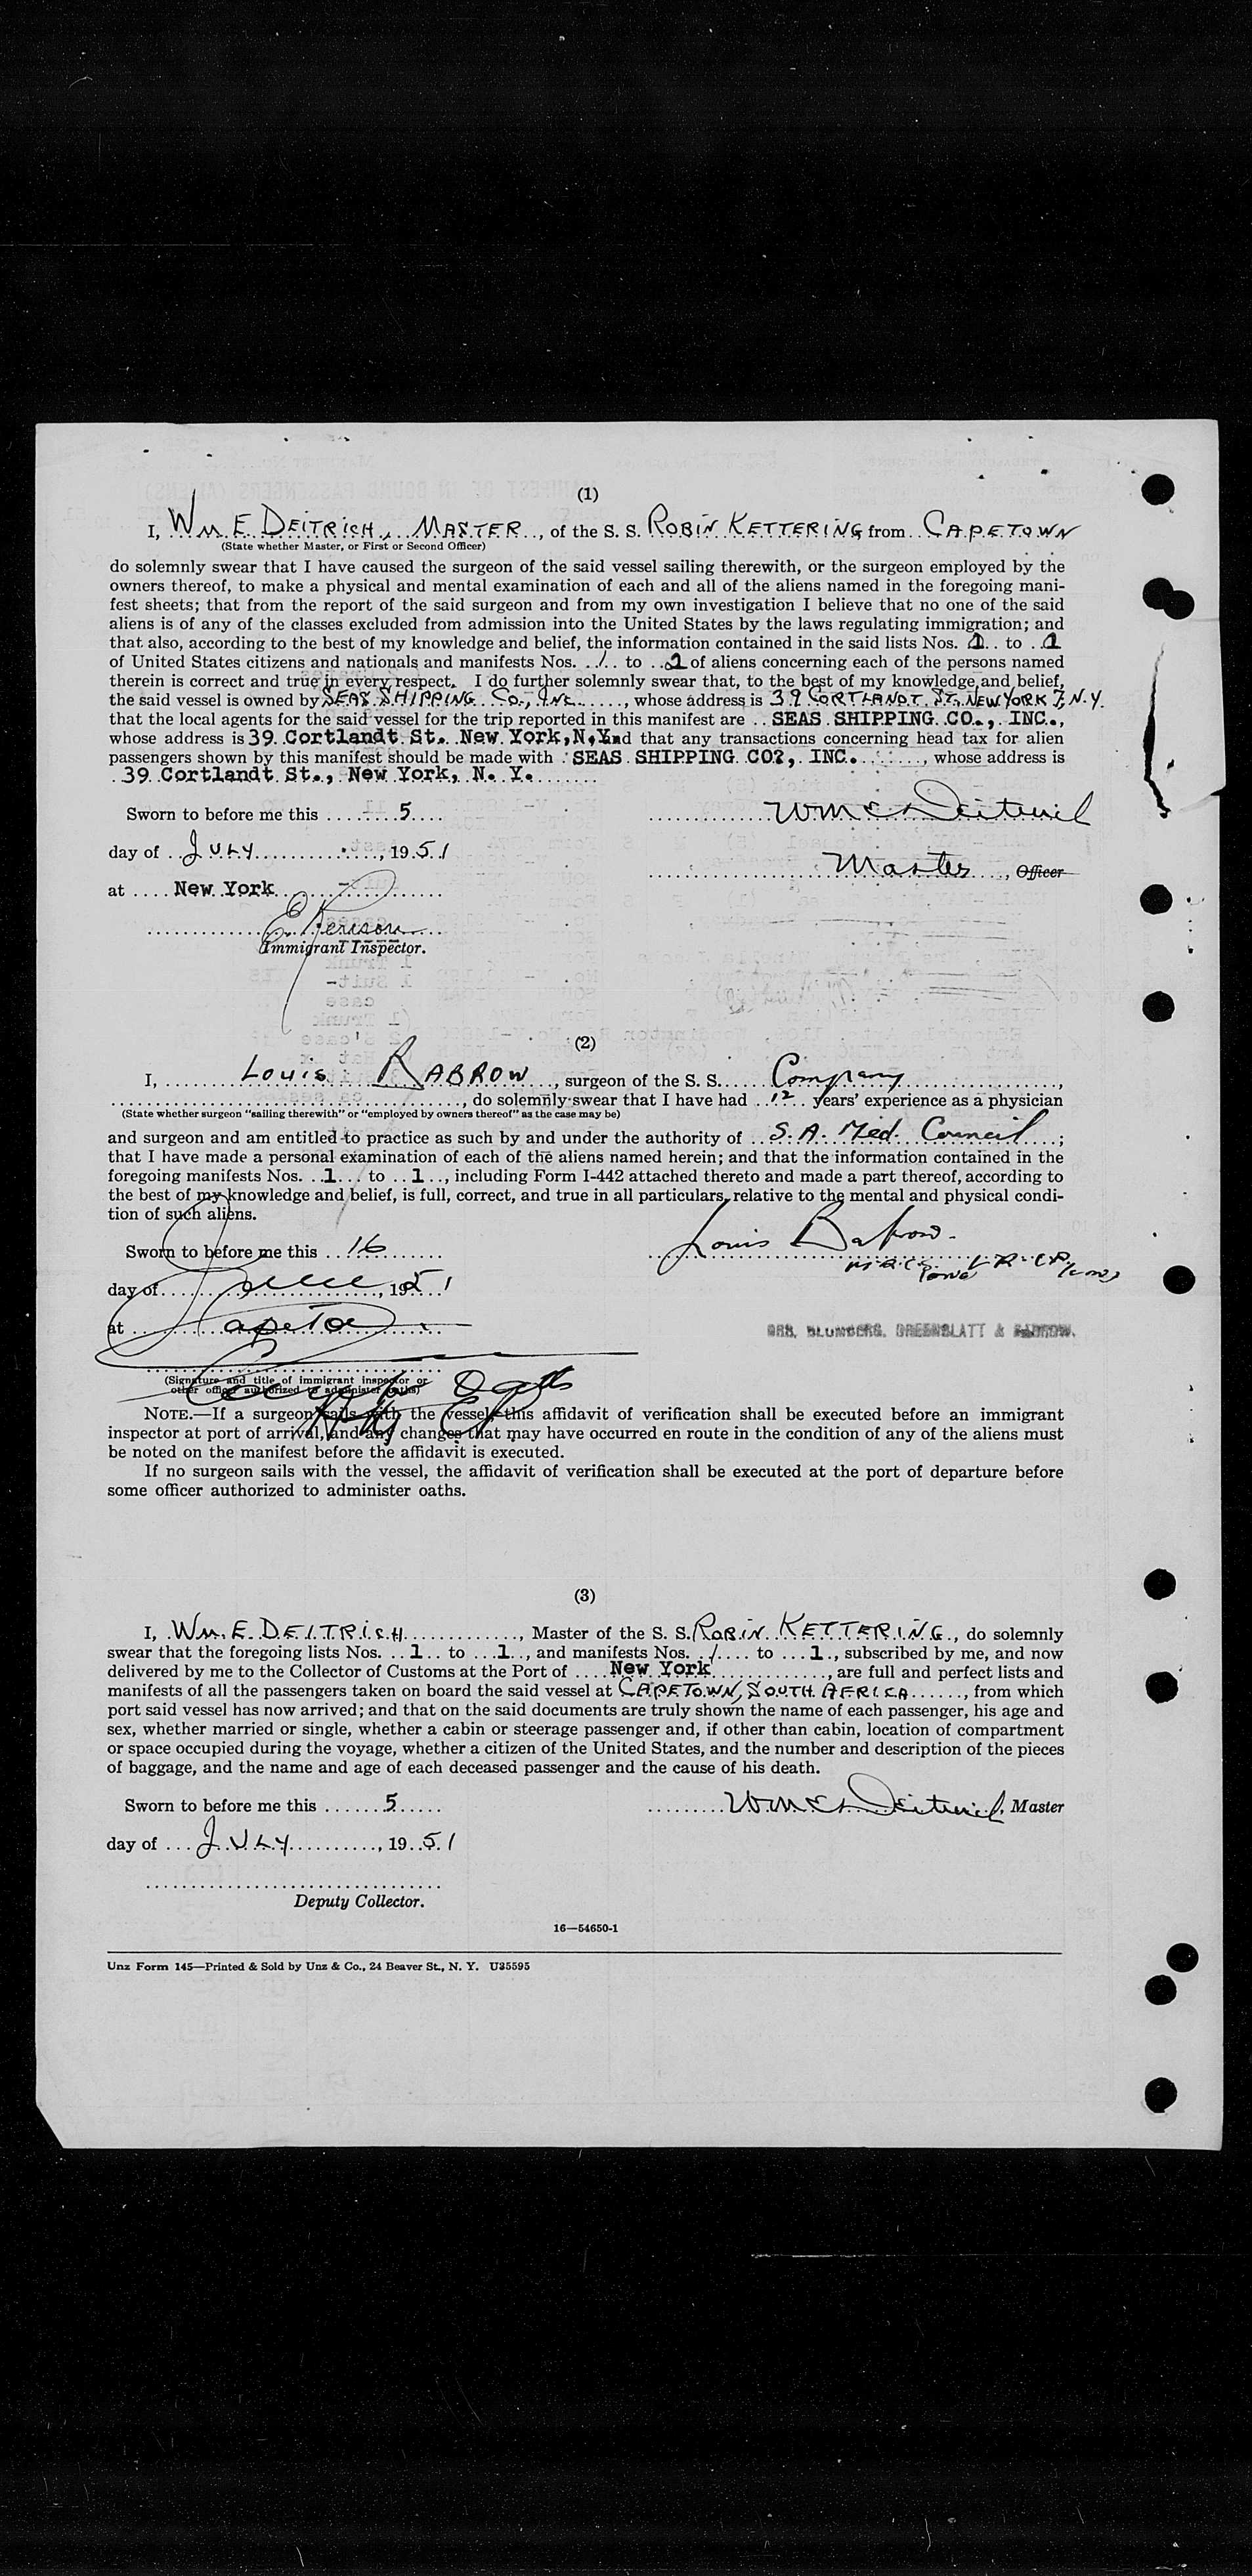 (1)
I, Wm. E. DEITRICH, MASTER, of the S. S. ROBIN KETTERING from CAPETOWN
(State whether Master, or First or Second Officer)
do solemnly swear that I have caused the surgeon of the said vessel sailing therewith, or the surgeon employed by the
owners thereof, to make a physical and mental examination of each and all of the aliens named in the foregoing mani-
fest sheets; that from the report of the said surgeon and from my own investigation I believe that no one of the said
aliens is of any of the classes excluded from admission into the United States by the laws regulating immigration; and
that also, according to the best of my knowledge and belief, the information contained in the said lists Nos. 1 to 1
of United States citizens and nationals and manifests Nos. 1 to of aliens concerning each of the persons named
therein is correct and true in every respect. I do further solemnly swear that, to the best of my knowledge and belief,
the said vessel is owned by SEAS SHIPPING CO., INC., whose address is 39 CORTLANDT ST., NEW YORK 7, N.Y.
that the local agents for the said vessel for the trip reported in this manifest are SEAS SHIPPING CO., INC.,
whose address is 39 Cortlandt St. New York, N.Y.nd that any transactions concerning head tax for alien
passengers shown by this manifest should be made with SEAS SHIPPING CO?, INC., whose address is
39 Cortlandt St., New York, N. Y.
Sworn to before me this 5 Wm E Deitrich
day of JULY, 1951
Master, Officer
at New York
Immigrant Inspector.
(2)
I, Louis RABROW, surgeon of the S. S. Company,
, do solemnly swear that I have had 12 years' experience as a physician
(State whether surgeon "sailing therewith" or "employed by owners thereof" as the case may be)
and surgeon and am entitled to practice as such by and under the authority of S. A. Med. Council;
that I have made a personal examination of each of the aliens named herein; and that the information contained in the
foregoing manifests Nos. 1 to 1, including Form I-442 attached thereto and made a part thereof, according to
the best of my knowledge and belief, is full, correct, and true in all particulars, relative to the mental and physical condi-
tion of such aliens.
Sworn to before me this 16 Louis
day of June, 1951
at
DRS. BLUMBERG, GREENBLATT & RABROW.
(Signature and title of immigrant inspector or
other officer authorized to administer oaths)
NOTE.—If a surgeon sails with the vessel, this affidavit of verification shall be executed before an immigrant
inspector at port of arrival, and any changes that may have occurred en route in the condition of any of the aliens must
be noted on the manifest before the affidavit is executed.
If no surgeon sails with the vessel, the affidavit of verification shall be executed at the port of departure before
some officer authorized to administer oaths.
(3)
I, Wm. E. DEITRICH, Master of the S. S. ROBIN KETTERING, do solemnly
swear that the foregoing lists Nos. 1 to 1, and manifests Nos. 1 to 1, subscribed by me, and now
delivered by me to the Collector of Customs at the Port of New York, are full and perfect lists and
manifests of all the passengers taken on board the said vessel at CAPETOWN, SOUTH AFRICA, from which
port said vessel has now arrived; and that on the said documents are truly shown the name of each passenger, his age and
sex, whether married or single, whether a cabin or steerage passenger and, if other than cabin, location of compartment
or space occupied during the voyage, whether a citizen of the United States, and the number and description of the pieces
of baggage, and the name and age of each deceased passenger and the cause of his death.
Sworn to before me this 5 Wm E Deitrich, Master
day of JULY, 1951
Deputy Collector.
16—54650-1
Unz Form 145—Printed & Sold by Unz & Co., 24 Beaver St., N. Y. U35595